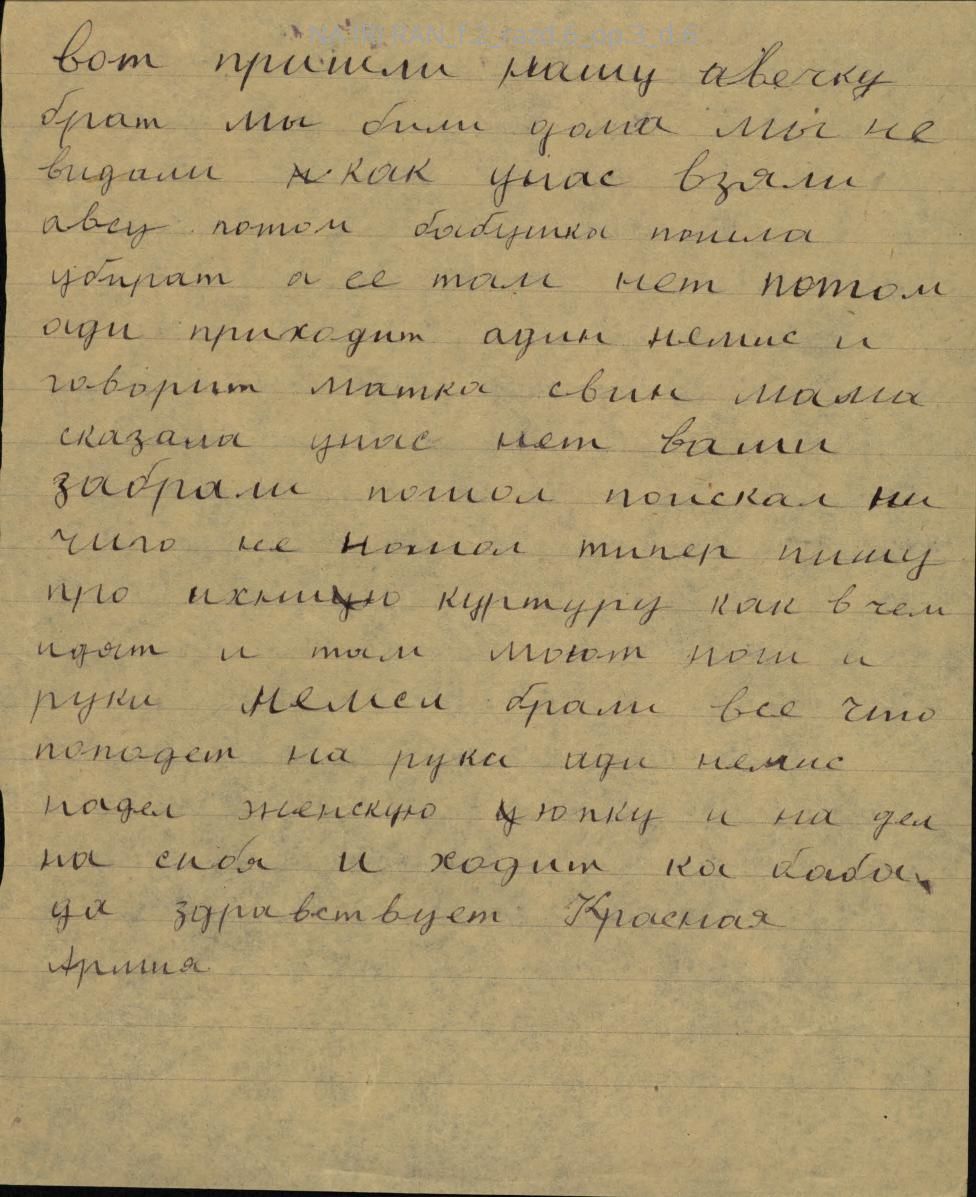 NA IRI RAN_f.2_razd.6_op.3_d.6
вот пришли нашу авечку
брат мы били дома мы не
видали как унас взяли
авцу потом бабушка пошла
убират а ее там нет потом
ади приходит адин немис и
говорит матка свин мама
сказала унас нет вами
забрали пошол поискал ни
чиго не нашол типер пишу
про ихнию куртуру как в чем
идят и там моют ноги и
руки немси брали все что
попадет на рука ади немис
надел женскую юпку и на дел
на сибя и ходит ка баба
да здравствует Красная
Армия